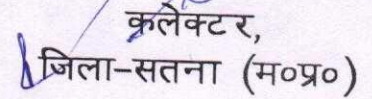 कलेक्टर,
जिला-सतना (म०प्र०)